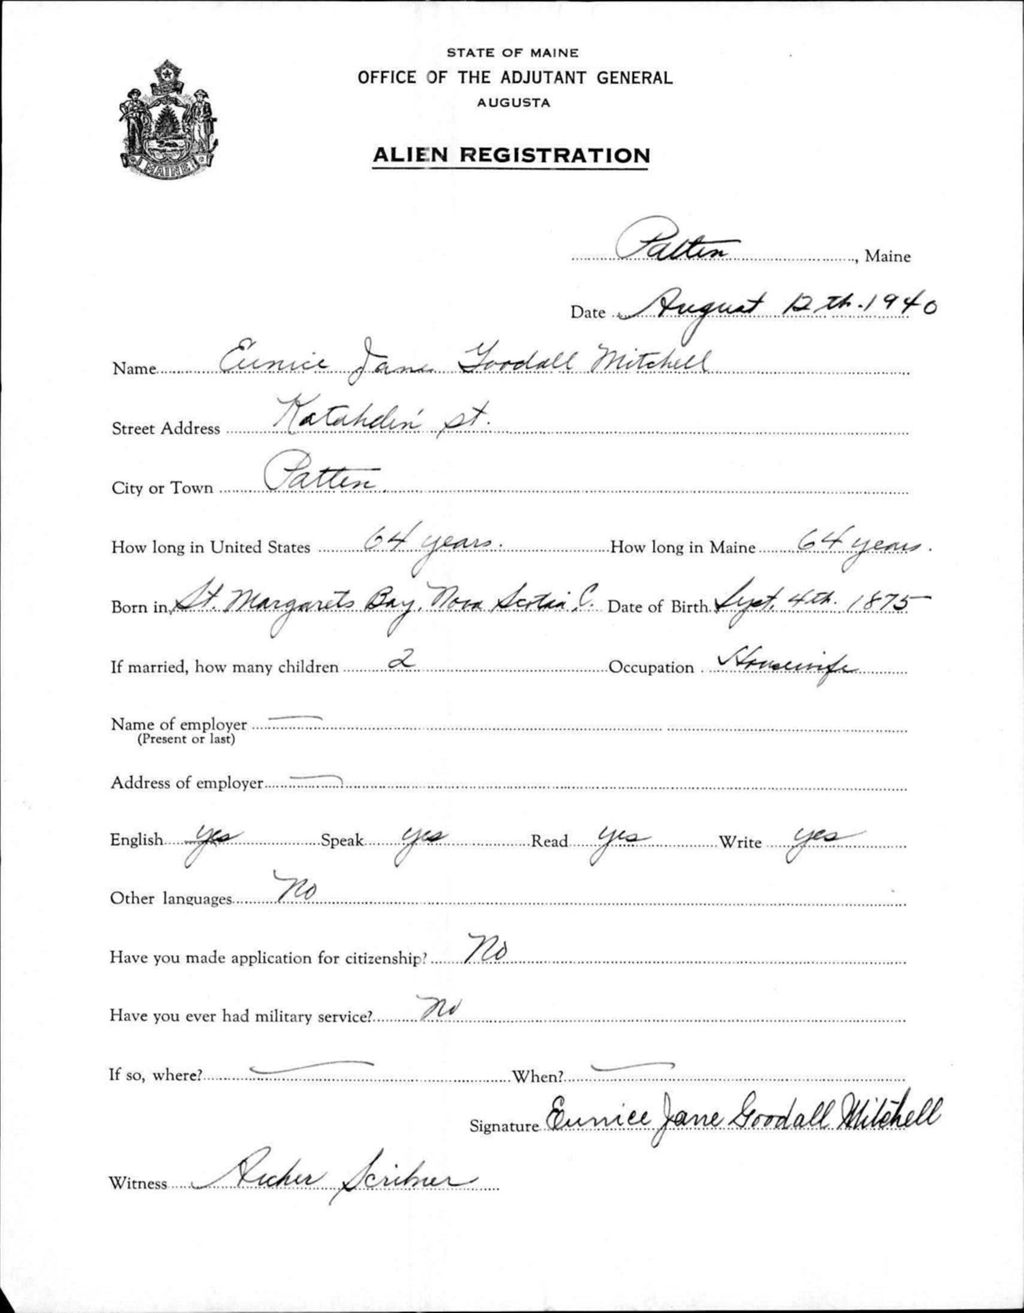 STATE OF MAINE
OFFICE OF THE ADJUTANT GENERAL
AUGUSTA
ALIEN REGISTRATION
MAINE
Patten, Maine
Date August 12th. 1940
Name Eunice Jane Goodall Mitchell
Street Address Katahdin St.
City or Town Patten.
How long in United States 64 years. How long in Maine 64 years.
Born in St. Margarets Bay, Nova Scotia, C. Date of Birth Sept. 4th. 1875
If married, how many children 2 Occupation Housewife
Name of employer —
(Present or last)
Address of employer —
English yes Speak yes Read yes Write yes
Other languages No
Have you made application for citizenship? No
Have you ever had military service? No
If so, where? — When? —
Signature Eunice Jane Goodall Mitchell
Witness Archer Scribner